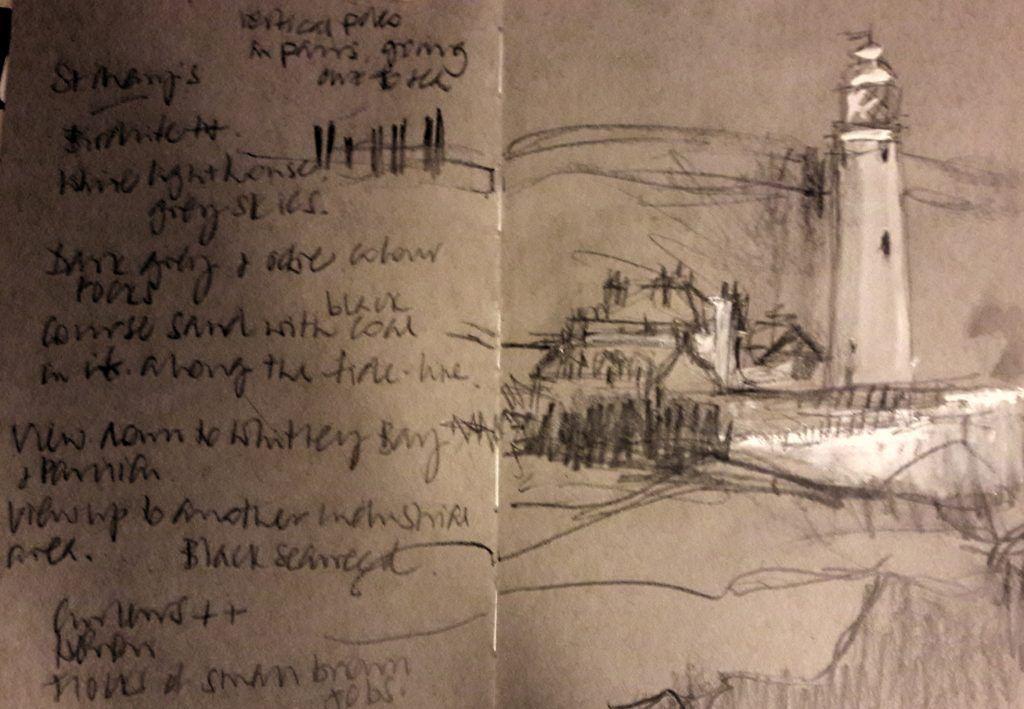 vertical poles
in pairs, going
out to sea
St Mary's
White lighthouse.
grey skies.
Dark grey + ochre colour
rocks
coarse sand with black coal
in it. along the tide-line.
View down to Whitley Bay
View up to another industrial
area. Black seaweed.
Curlews ++
flocks of small brown
jobs.